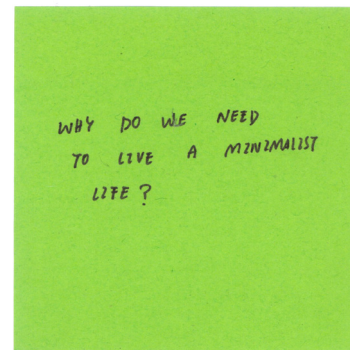 WHY DO WE NEED
TO LIVE A MINIMALIST
LIFE?